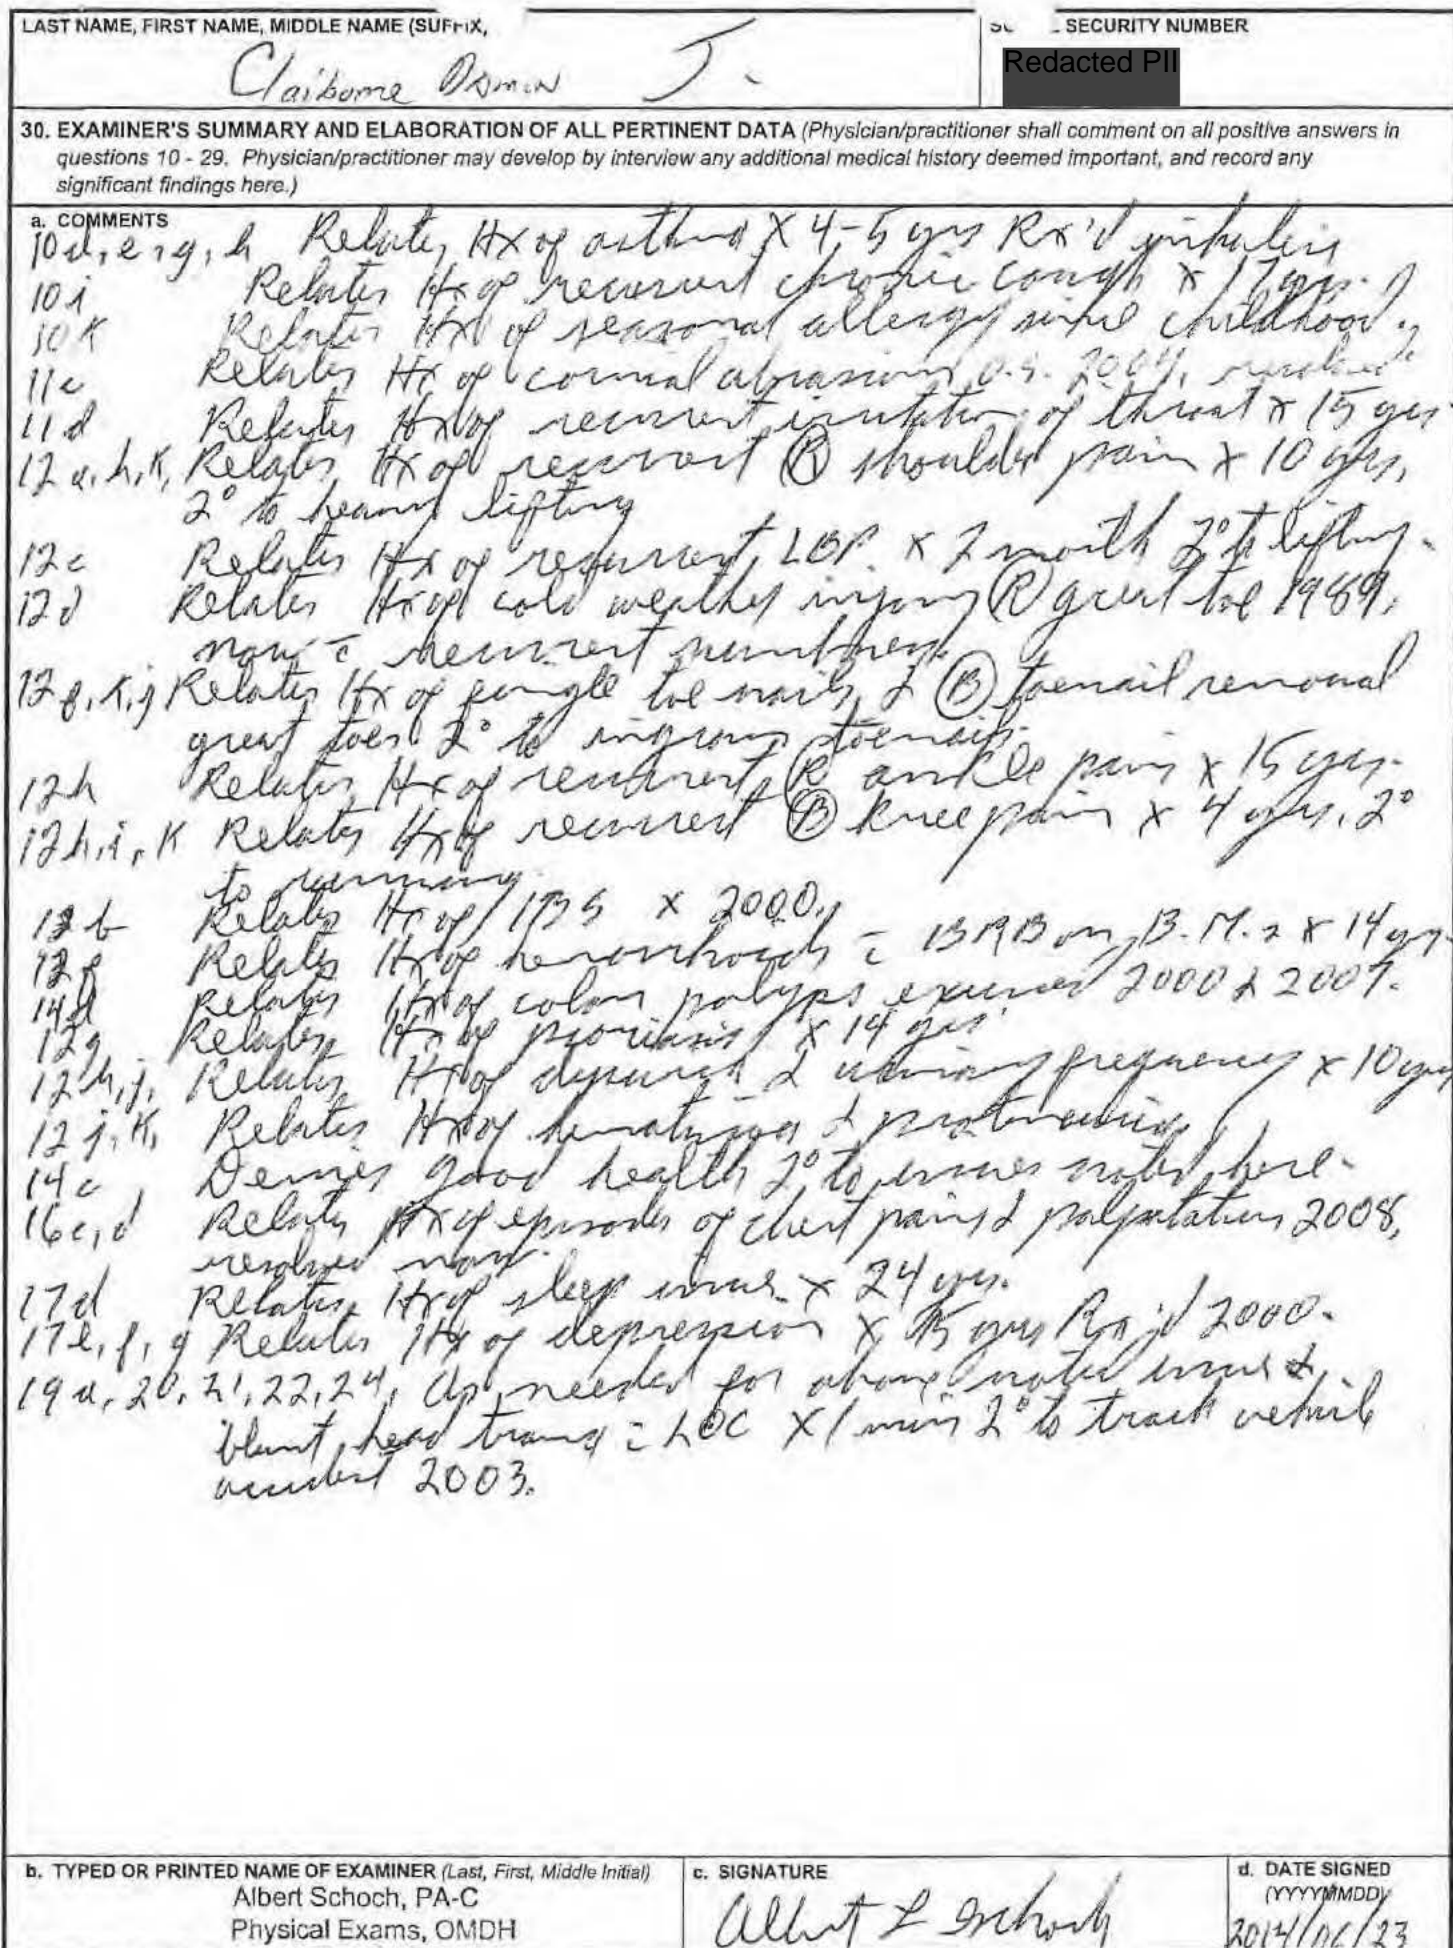 LAST NAME, FIRST NAME, MIDDLE NAME (SUFFIX,
SECURITY NUMBER
Claiborne Osmin J.
Redacted PII
30. EXAMINER'S SUMMARY AND ELABORATION OF ALL PERTINENT DATA (Physician/practitioner shall comment on all positive answers in
questions 10 - 29. Physician/practitioner may develop by interview any additional medical history deemed important, and record any
significant findings here.)
a. COMMENTS
10d, e, g, h Relates Hx of asthma X 4-5 yrs Rx'd inhalers
10i Relates Hx of recurrent chronic cough x 17 yrs.
10k Relates Hx of seasonal allergy since childhood.
11c Relates Hx of corneal abrasion O.S. 2004, resolved
11d Relates Hx of recurrent irritation of throat x 15 yrs.
12a, h, k, Relates Hx of recurrent Ⓡ shoulder pain x 10 yrs,
2° to heavy lifting
12c Relates Hx of recurrent LBP x 2 month 2° to lifting.
12d Relates Hx of cold weather injury Ⓡ great toe 1989,
now c̄ recurrent numbness
12 k, j Relates Hx of toe nails & Ⓑ toenail removal
great toes 2° to ingrown toenails.
12h Relates Hx of recurrent R ankle pain x 15 yrs.
12h, i, k Relates Hx of recurrent Ⓑ knee pain x 4 yrs, 2°
to running.
13b Relates Hx of IBS x 2000.
Relates Hx of hemorrhoids c̄ BRB on B.M.s x 14 yrs.
14d Relates Hx of colon polyps 2000 &
Relates Hx of psoriasis x 14 yrs.
Relates Hx of dysuria & urinary frequency x 10 yrs
Relates Hx of hematuria & proteinuria
14c Denies good health 2° to issues noted here.
16c, d Relates Hx of episodes of chest pain & palpitations 2008,
resolved now.
17d Relates Hx of sleep issues x 24 yrs.
17e, f, g Relates Hx of depression x 15 yrs Rx'd 2000.
19a, 20, 21, 22, 24, As needed for above noted issues &
blunt head trauma c̄ LOC X 1 min 2° to track vehicle
accident 2003.
b. TYPED OR PRINTED NAME OF EXAMINER (Last, First, Middle Initial)
c. SIGNATURE
d. DATE SIGNED
(YYYYMMDD)
Albert Schoch, PA-C
Physical Exams, OMDH
Albert L Schoch
2014/06/23